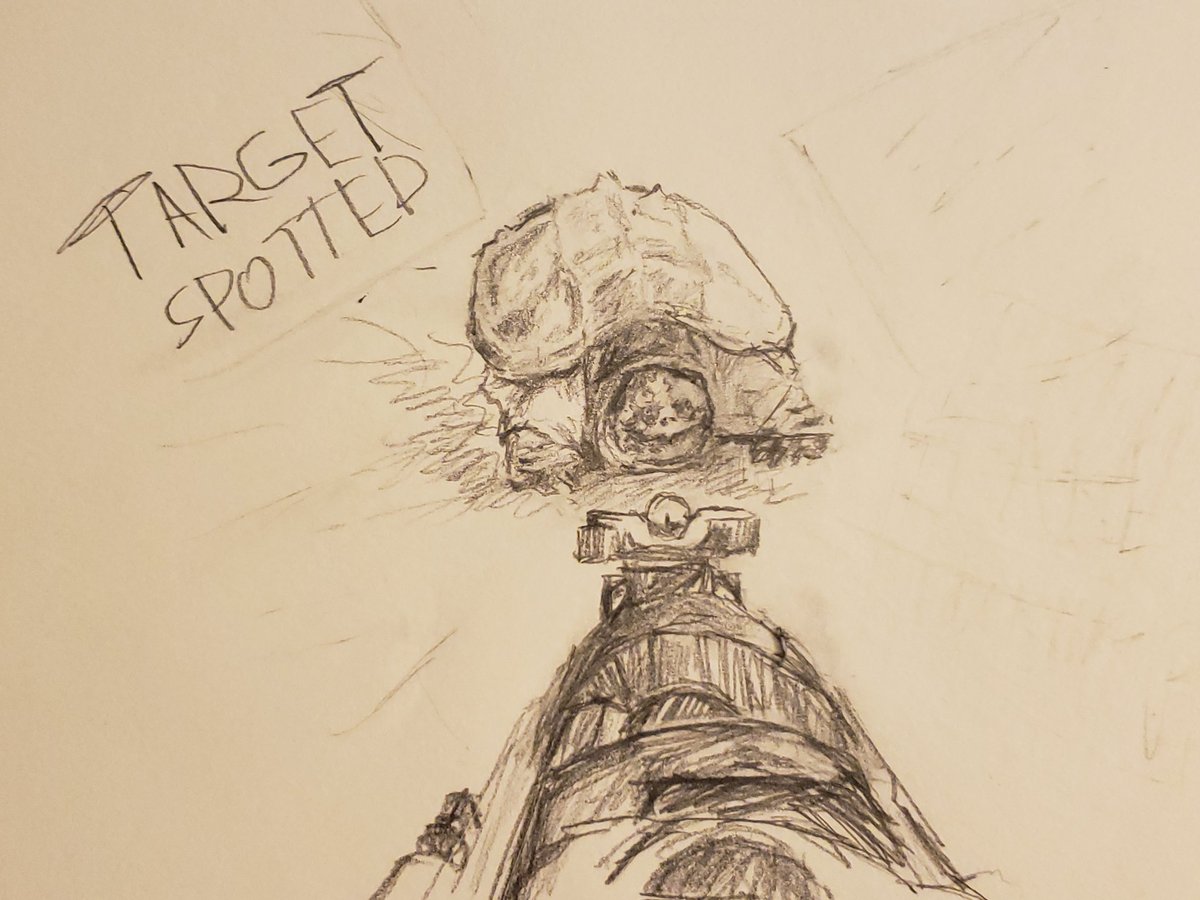 TARGET
SPOTTED